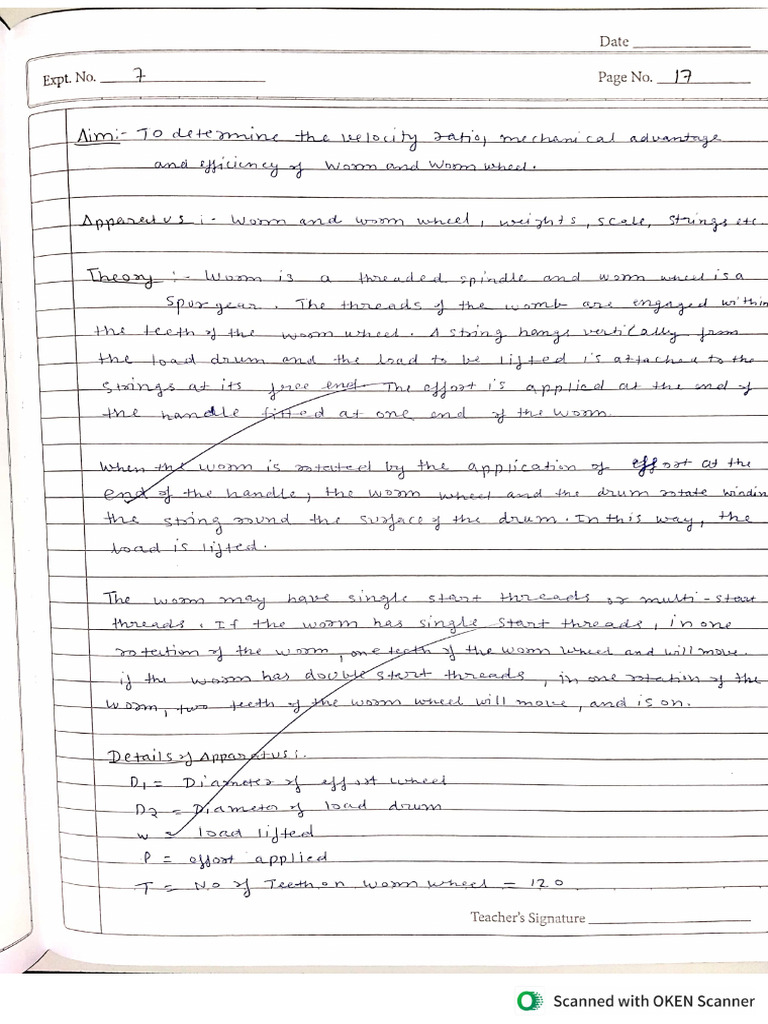 Date
Expt. No. 7
Page No. 17
Aim:- To determine the velocity ratio, mechanical advantage
and efficiency of Worm and Worm wheel.
Apparatus :- Worm and worm wheel, weights, scale, strings etc.
Theory :- Worm is a threaded spindle and worm wheel is a
Spur gear. The threads of the womb are engaged within
the teeth of the worm wheel. A string hangs vertically from
the load drum and the load to be lifted is attached to the
strings at its free end. The effort is applied at the end of
the handle fitted at one end of the worm.
When the worm is rotated by the application of effort at the
end of the handle, the worm wheel and the drum rotate windin
the string round the surface of the drum. In this way, the
load is lifted.
The worm may have single start threads or multi-start
threads. If the worm has single start threads, in one
rotection of the worm, one teeth of the worm wheel and will move.
if the worm has double start threads, in one rotation of the
worm, two teeth of the worm wheel will move, and is on.
Details of Apparatus :.
D1 = Diameter of effort wheel
D2 = Diameter of load drum
w = load lifted
P = effort applied
T = No of Teeth on worm wheel = 120
Teacher's Signature
Scanned with OKEN Scanner